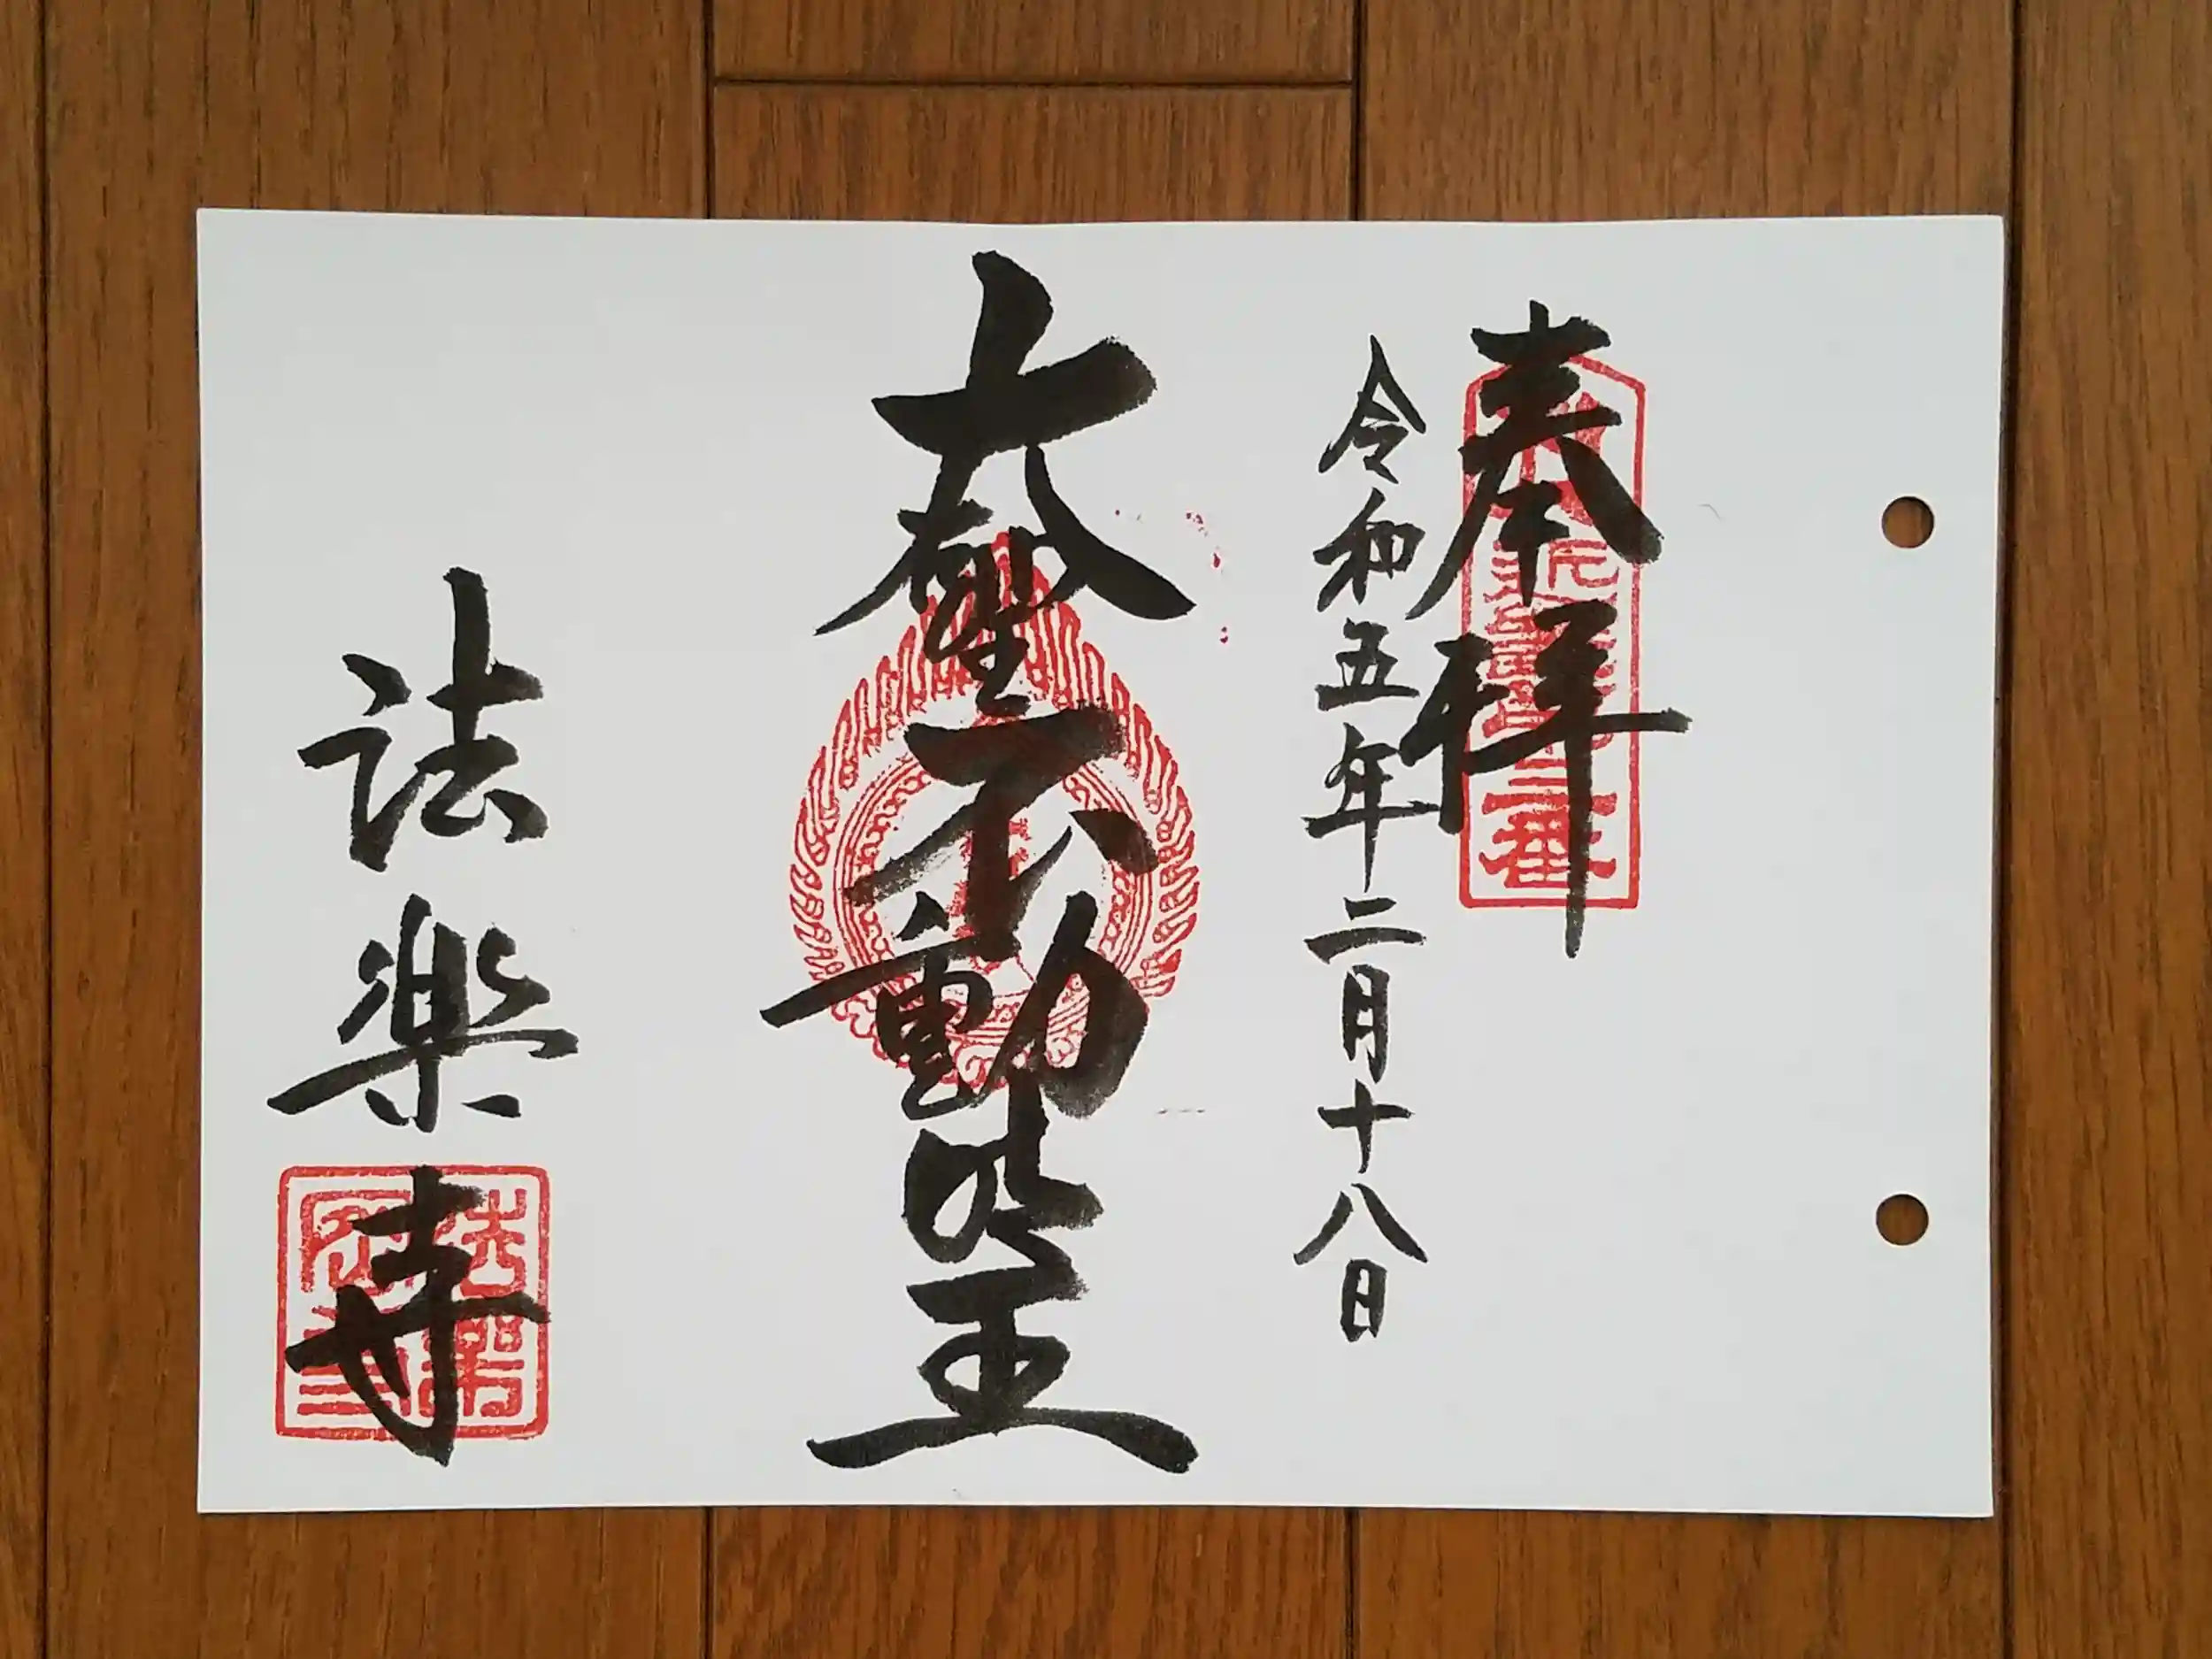 奉拝
令和五年二月十八日
大聖不動明王
法樂寺